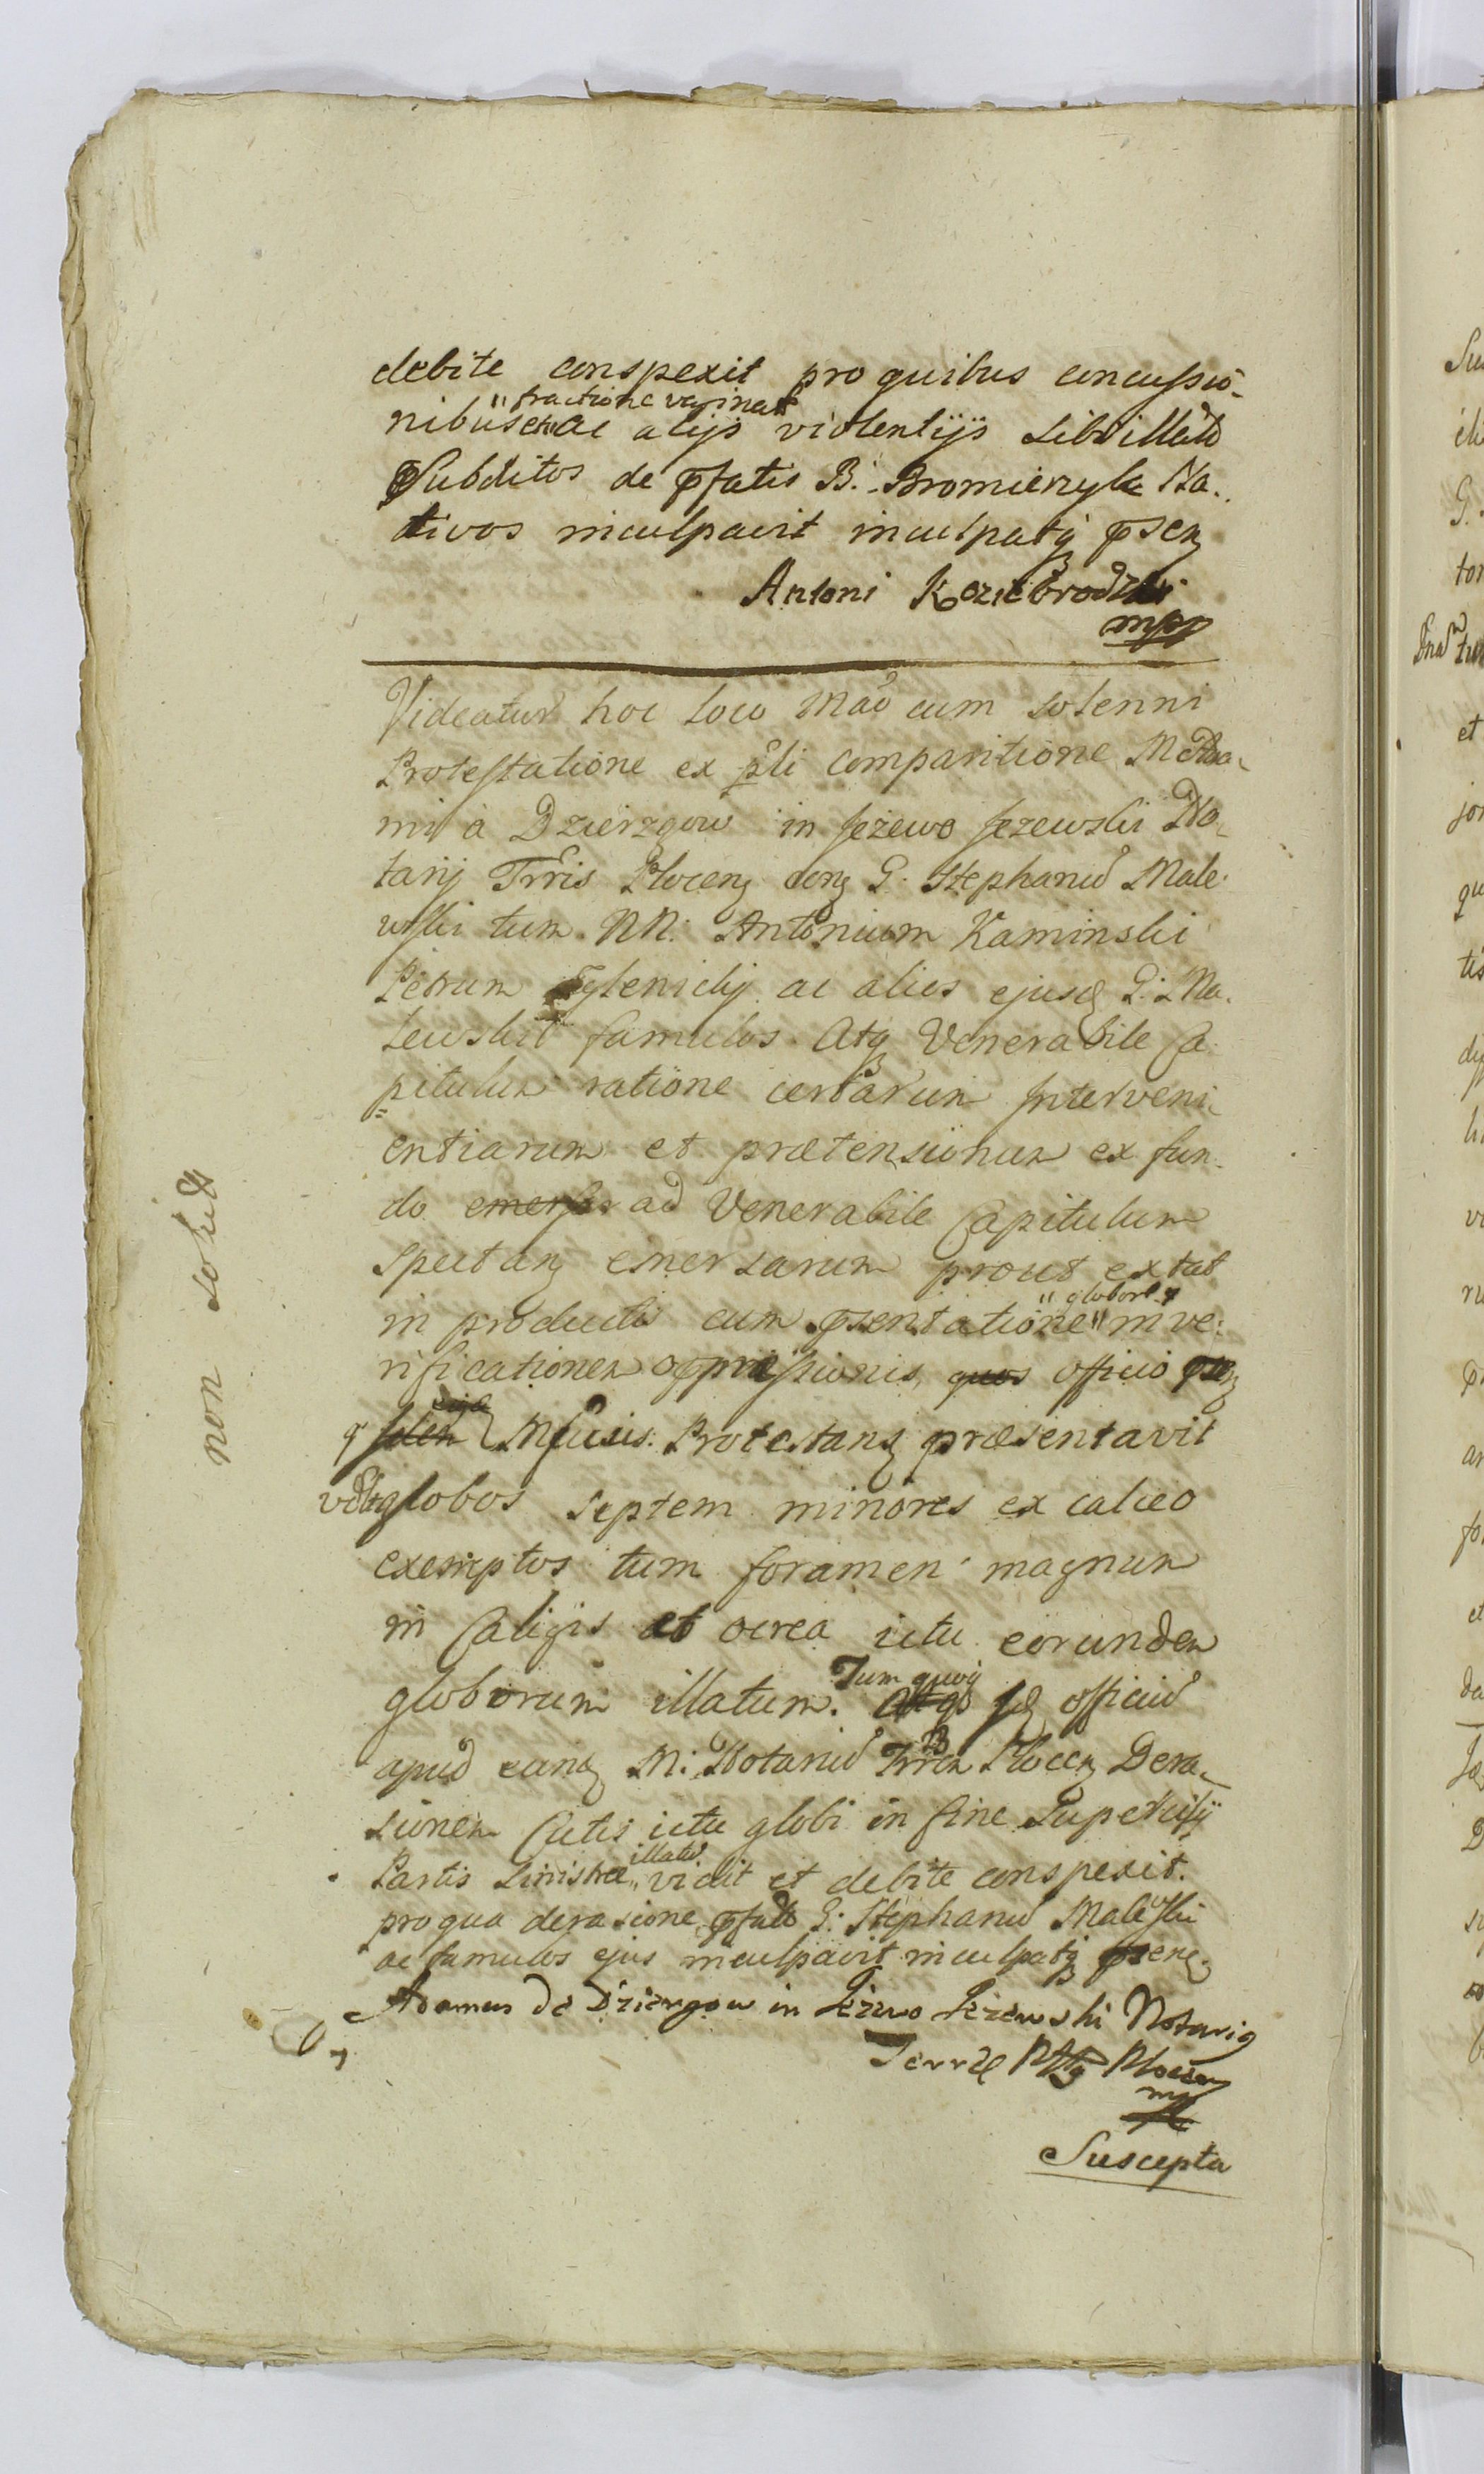 debite conspexit pro quibus concussio-
"fractione
nibus ac alijs violentijs sibi illatis
Subditos de pfatis B. Bromierzyk Na-
tivos inculpavit inculpatq psen
Antoni Koziebrodzki
mpp
Videatur hoc loco Mao cum solenni
Protestatione ex pli comparitione M Ada-
mi à Dzierzgow in Jeżewo Jezewski No-
tarij Trris Plocen con G. Stephanu Male-
wski tum NN. Antonium Kaminski
Petrum ac alios ejusd G. Ma-
lewski famulos Atq Venerabile Ca-
pitulum ratione certarum Interveni-
entiarum et prætensionum ex fun-
do ad Venerabile Capitulum
spectan emersarum prout extat
"globor
in productis cum psentatione" in ve-
rificationem oppressionis, quos officio psen
q M Protestans præsentavit
vdlt globos septem minores ex calceo
exemptos tum foramen magnum
in Caligis et ocrea ictu eorundem
globorum illatum. Tum quoq id officiu
apud eund M. Notariu Trren Plocen Dera-
sionem Cutis ictu globi in fine Supercilij
illatu
Partis Sinistræ " vidit et debite conspexit.
pro qua derasione pfatu G. Stephanu Malewski
ac famulos ejus inculpavit inculpatq psen
Adamus de Dzierzgow in Jeżewo Jeżewski Notariq
Terræ Plocen
mp
Suscepta
non solut